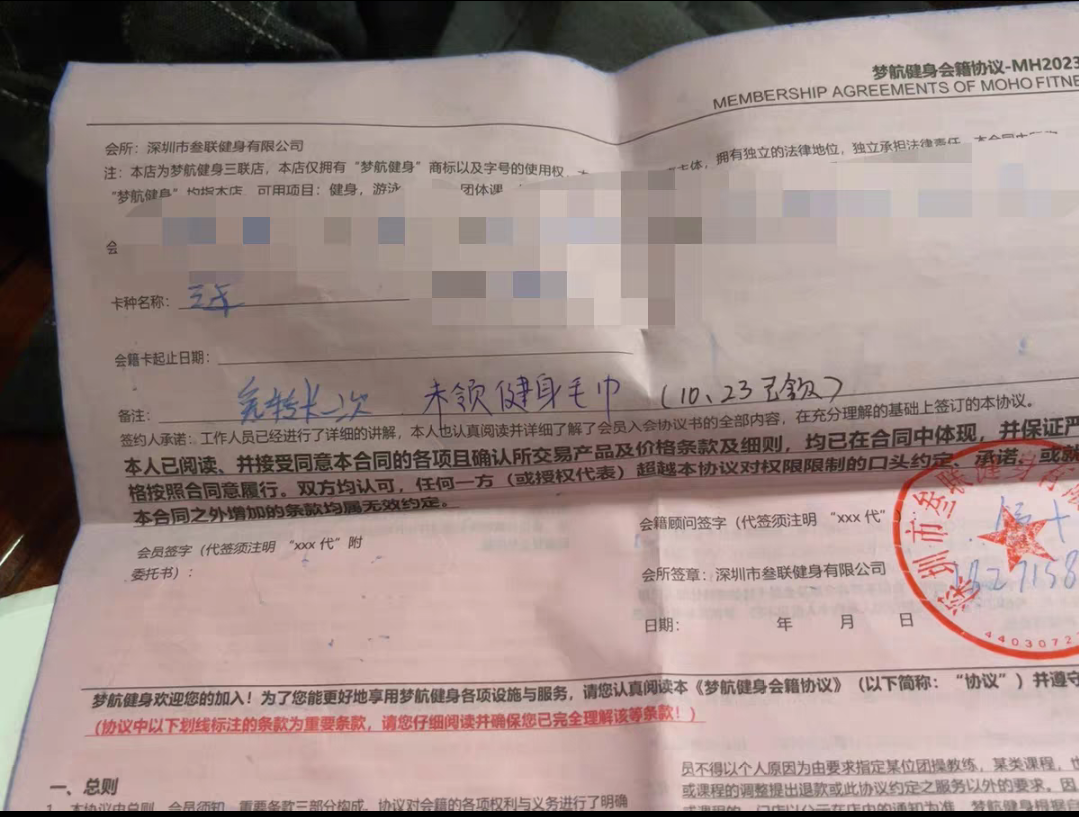 梦航健身会籍协议-MH2023
MEMBERSHIP AGREEMENTS OF MOHO FITNE
会所：深圳市叁联健身有限公司
注：本店为梦航健身三联店，本店仅拥有“梦航健身”商标以及字号的使用权 主体，拥有独立的法律地位，独立承担法律责任
“梦航健身”均指本店 可用项目：健身，游泳 团体课
会
卡种名称： 三年
会籍卡起止日期：
备注： 转卡二次 未领健身毛巾（10、23已领）
签约人承诺：工作人员已经进行了详细的讲解，本人也认真阅读并详细了解了会员入会协议书的全部内容，在充分理解的基础上签订的本协议。
本人已阅读、并接受同意本合同的各项且确认所交易产品及价格条款及细则，均已在合同中体现，并保证严
格按照合同意履行。双方均认可，任何一方（或授权代表）超越本协议对权限限制的口头约定、承诺、或就
本合同之外增加的条款均属无效约定。
会员签字（代签须注明“xxx 代”附
委托书）：
会籍顾问签字（代签须注明“xxx 代”）
会所签章：深圳市叁联健身有限公司
日期： 年 月 日
深圳市叁联健身有限
4403072
梦航健身欢迎您的加入！为了您能更好地享用梦航健身各项设施与服务，请您认真阅读本《梦航健身会籍协议》（以下简称：“协议”）并遵守
（协议中以下划线标注的条款为重要条款，请您仔细阅读并确保您已完全理解该等条款！）
一、总则
1、本协议由总则、会员须知、重要条款三部分构成。协议对会籍的各项权利与义务进行了明确
员不得以个人原因为由要求指定某位团操教练，某类课程，也
或课程的调整提出退款或此协议约定之服务以外的要求。因
或课程的，门店以公示在店中的通知为准，梦航健身根据自